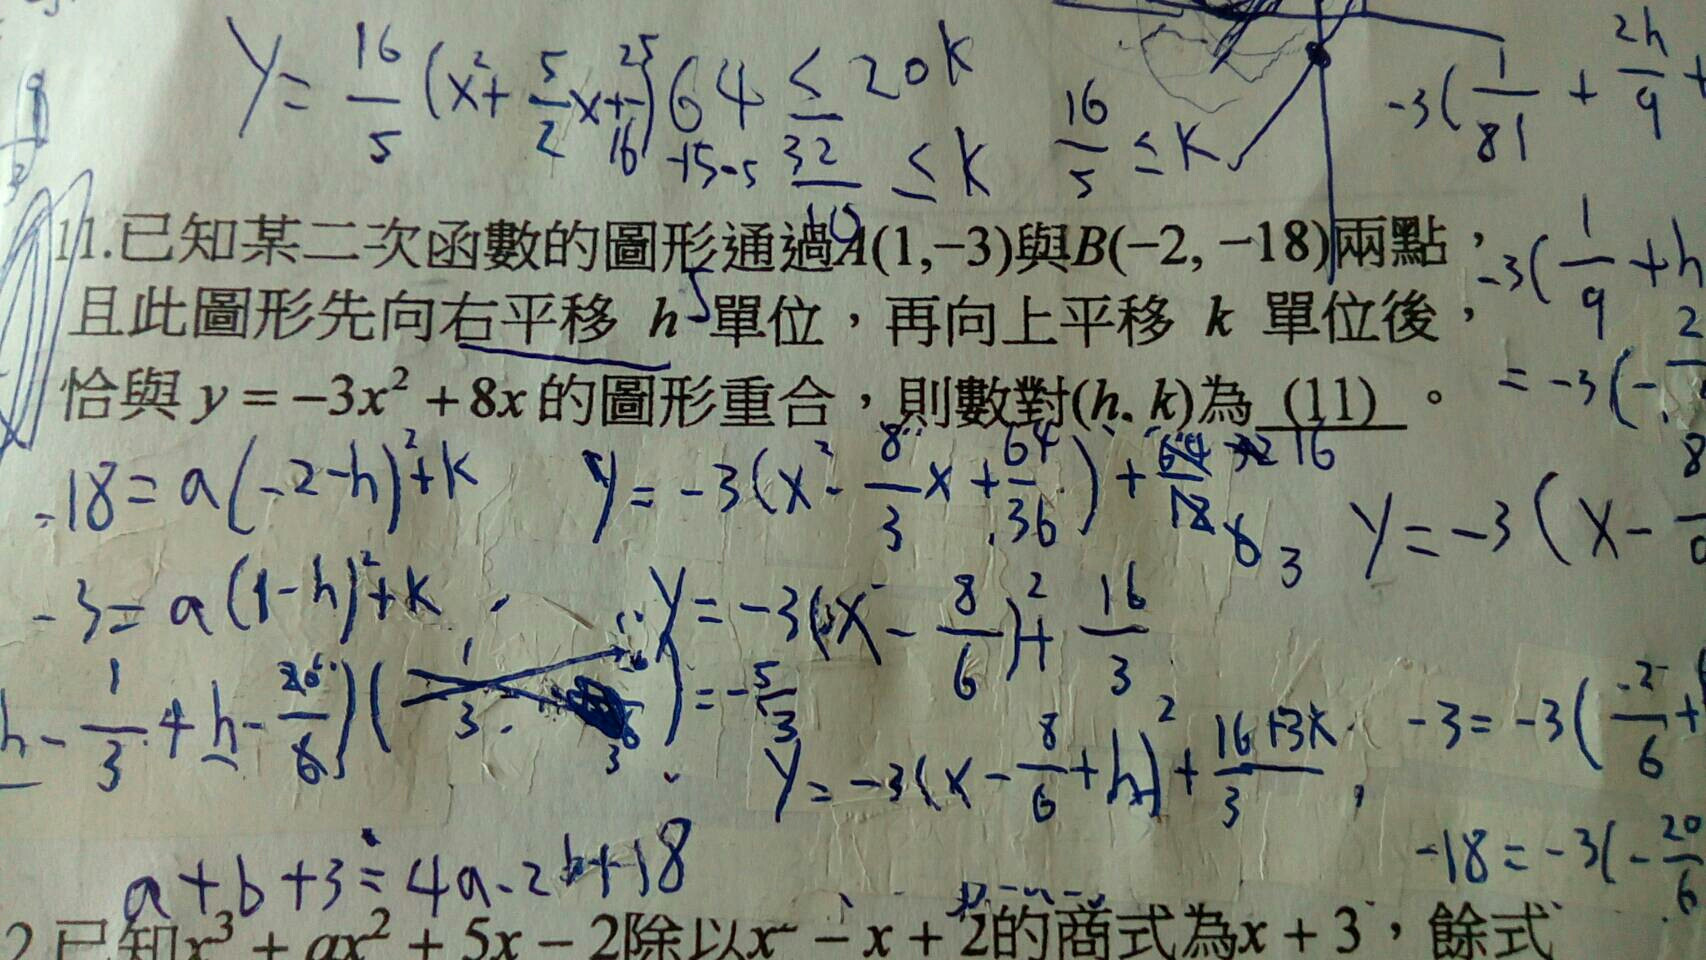 Y = 16/5 (x² + 5/2 x + 25/16) 64 ≤ 20k
-15-5 32/10 ≤ k
16/5 ≤ k
-3(1/81 + 2h/9 +
11.已知某二次函數的圖形通過A(1,−3)與B(−2, −18)兩點，
-3(1/9 + h
且此圖形先向右平移 h 單位，再向上平移 k 單位後，
= -3(-2
恰與 y = −3x² + 8x 的圖形重合，則數對(h, k)為 (11) 。
-18 = a(-2-h)²+k
y = -3(x² - 8/3 x + 64/36) + 16/3
Y = -3(X -
-3 = a(1-h)²+k
Y = -3(x - 8/6)² + 16/3
h - 1/3 + h - 26/6)( 1/3 ) = -5/3
Y = -3(x - 8/6 + h)² + 16+3k/3
-3 = -3(-2/6 +
a+b+3 = 4a-2b+18
-18 = -3(-20/6
2.已知x³ + ax² + 5x − 2除以x² − x + 2的商式為x + 3，餘式